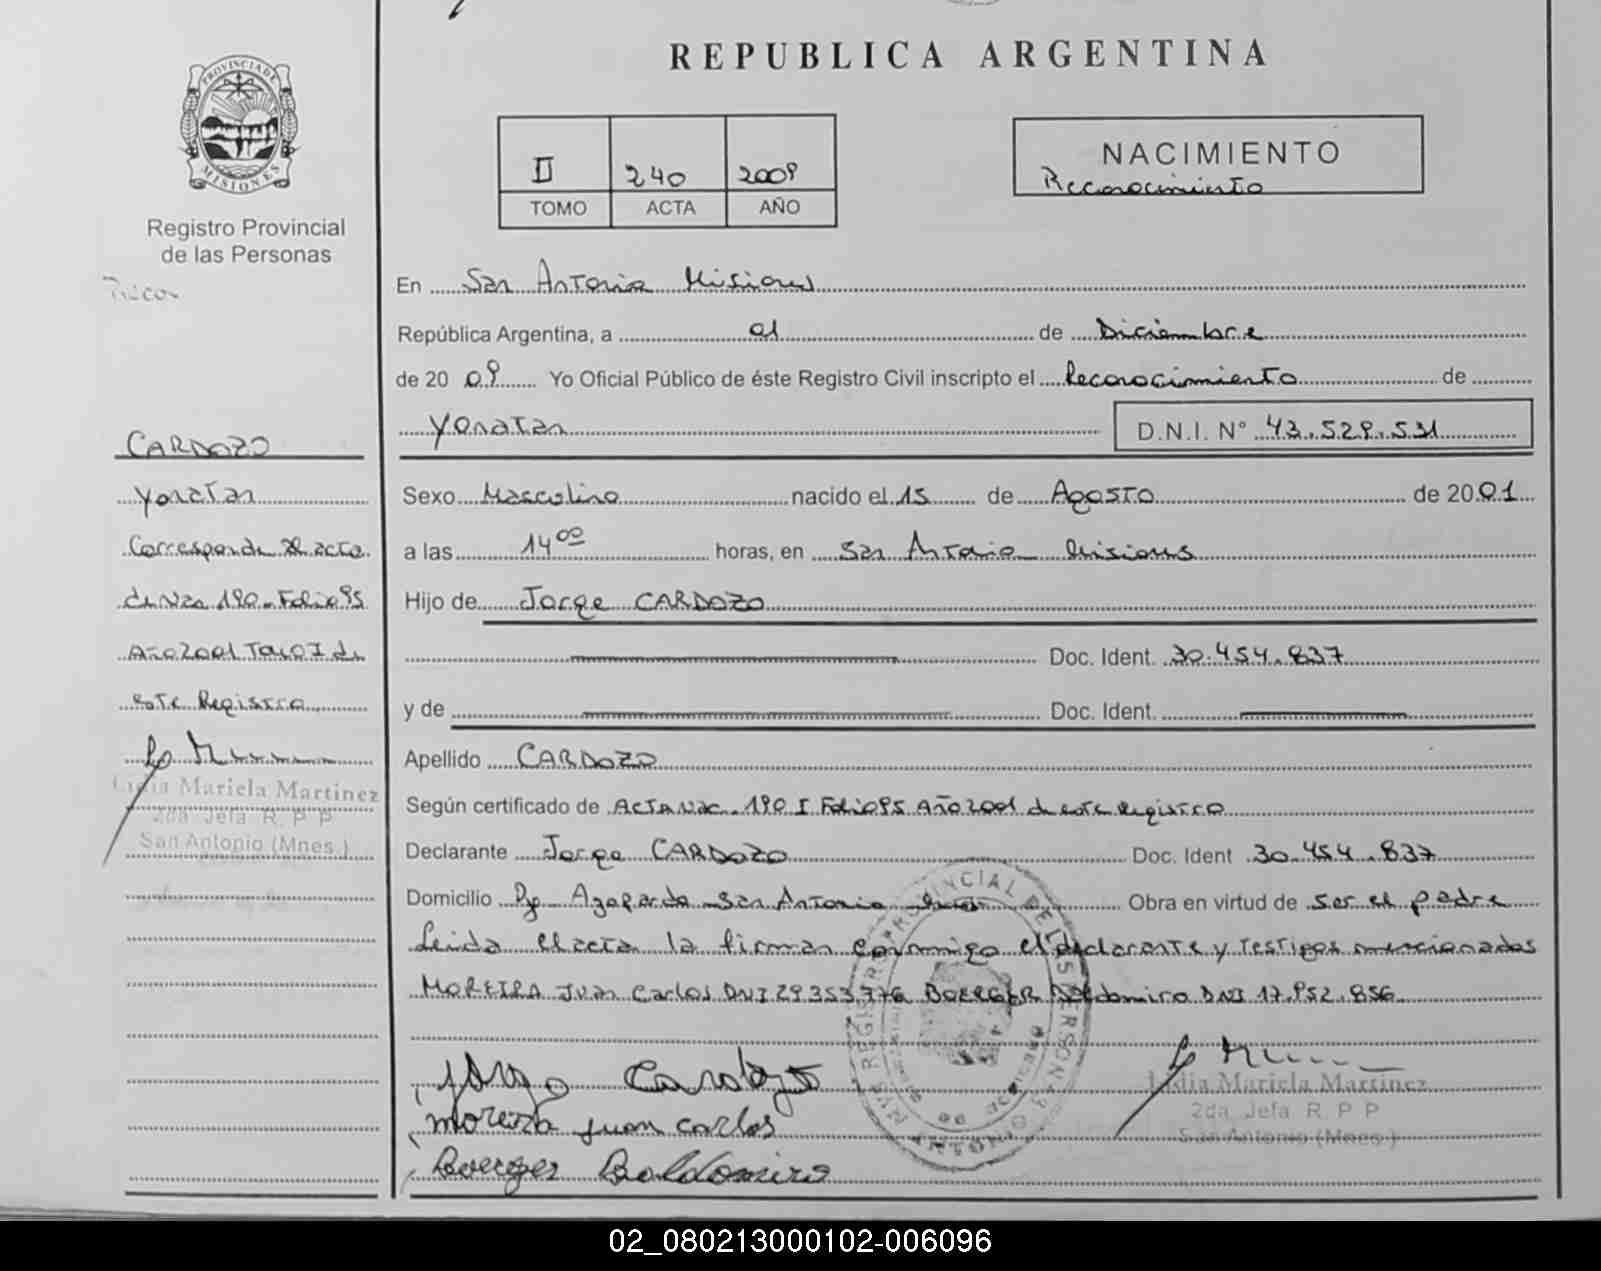 REPUBLICA ARGENTINA
PROVINCIA DE MISIONES
Registro Provincial
de las Personas
II 240 2009
TOMO ACTA AÑO
NACIMIENTO
Reconocimiento
En San Antonio Misiones
República Argentina, a 01 de Diciembre
de 20 09 Yo Oficial Público de éste Registro Civil inscripto el Reconocimiento de
Yonatan D.N.I. N° 43.529.531
Sexo Masculino nacido el 15 de Agosto de 20 01
a las 14 00 horas, en San Antonio Misiones
Hijo de Jorge CARDOZO
Doc. Ident. 30.454.837
y de Doc. Ident.
Apellido CARDOZO
Según certificado de Acta Nac. 190 I Folio 95 Año 2001 de este Registro
Declarante Jorge CARDOZO Doc. Ident 30.454.837
Domicilio San Antonio Obra en virtud de ser el padre
Leida el acta la firman conmigo el declarante y testigos mencionados
MOREIRA Juan Carlos DNI 29353376 BOERGER Baldomiro DNI 17.952.856
Jorge Cardozo
moreira juan carlos
Boerger Baldomiro
Lidia Mariela Martinez
2da. Jefa R. P. P.
San Antonio (Mnes.)
CARDOZO
Yonatan
Corresponde al acta
de Nac 190 - Folio 95
Año 2001 Tomo I de
este Registro
Lidia Mariela Martinez
2da. Jefa R. P. P.
San Antonio (Mnes.)
02_080213000102-006096